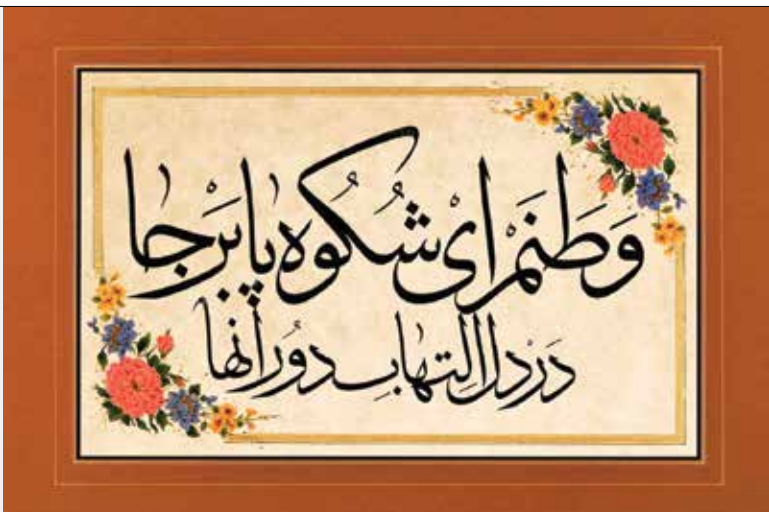 وَطَنَمْ اِیْ شُکُوهْ پابَرْجا
دَر دِلِ اِلتِهابِ دُورانها